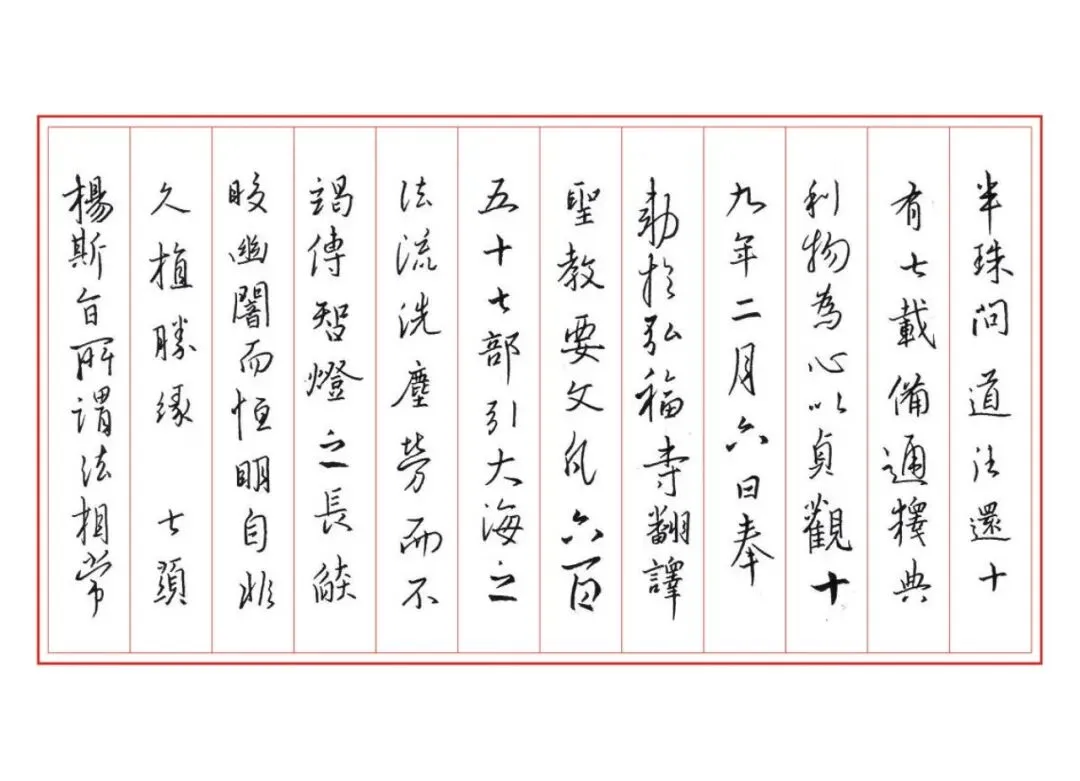 半珠問道往還十
有七載備通釋典
利物為心以貞觀十
九年二月六日奉
勅於弘福寺翻譯
聖教要文凡六百
五十七部引大海之
法流洗塵勞而不
竭傳智燈之長焰
晈幽闇而恒明自非
久植勝緣 顯
楊斯旨所謂法相常